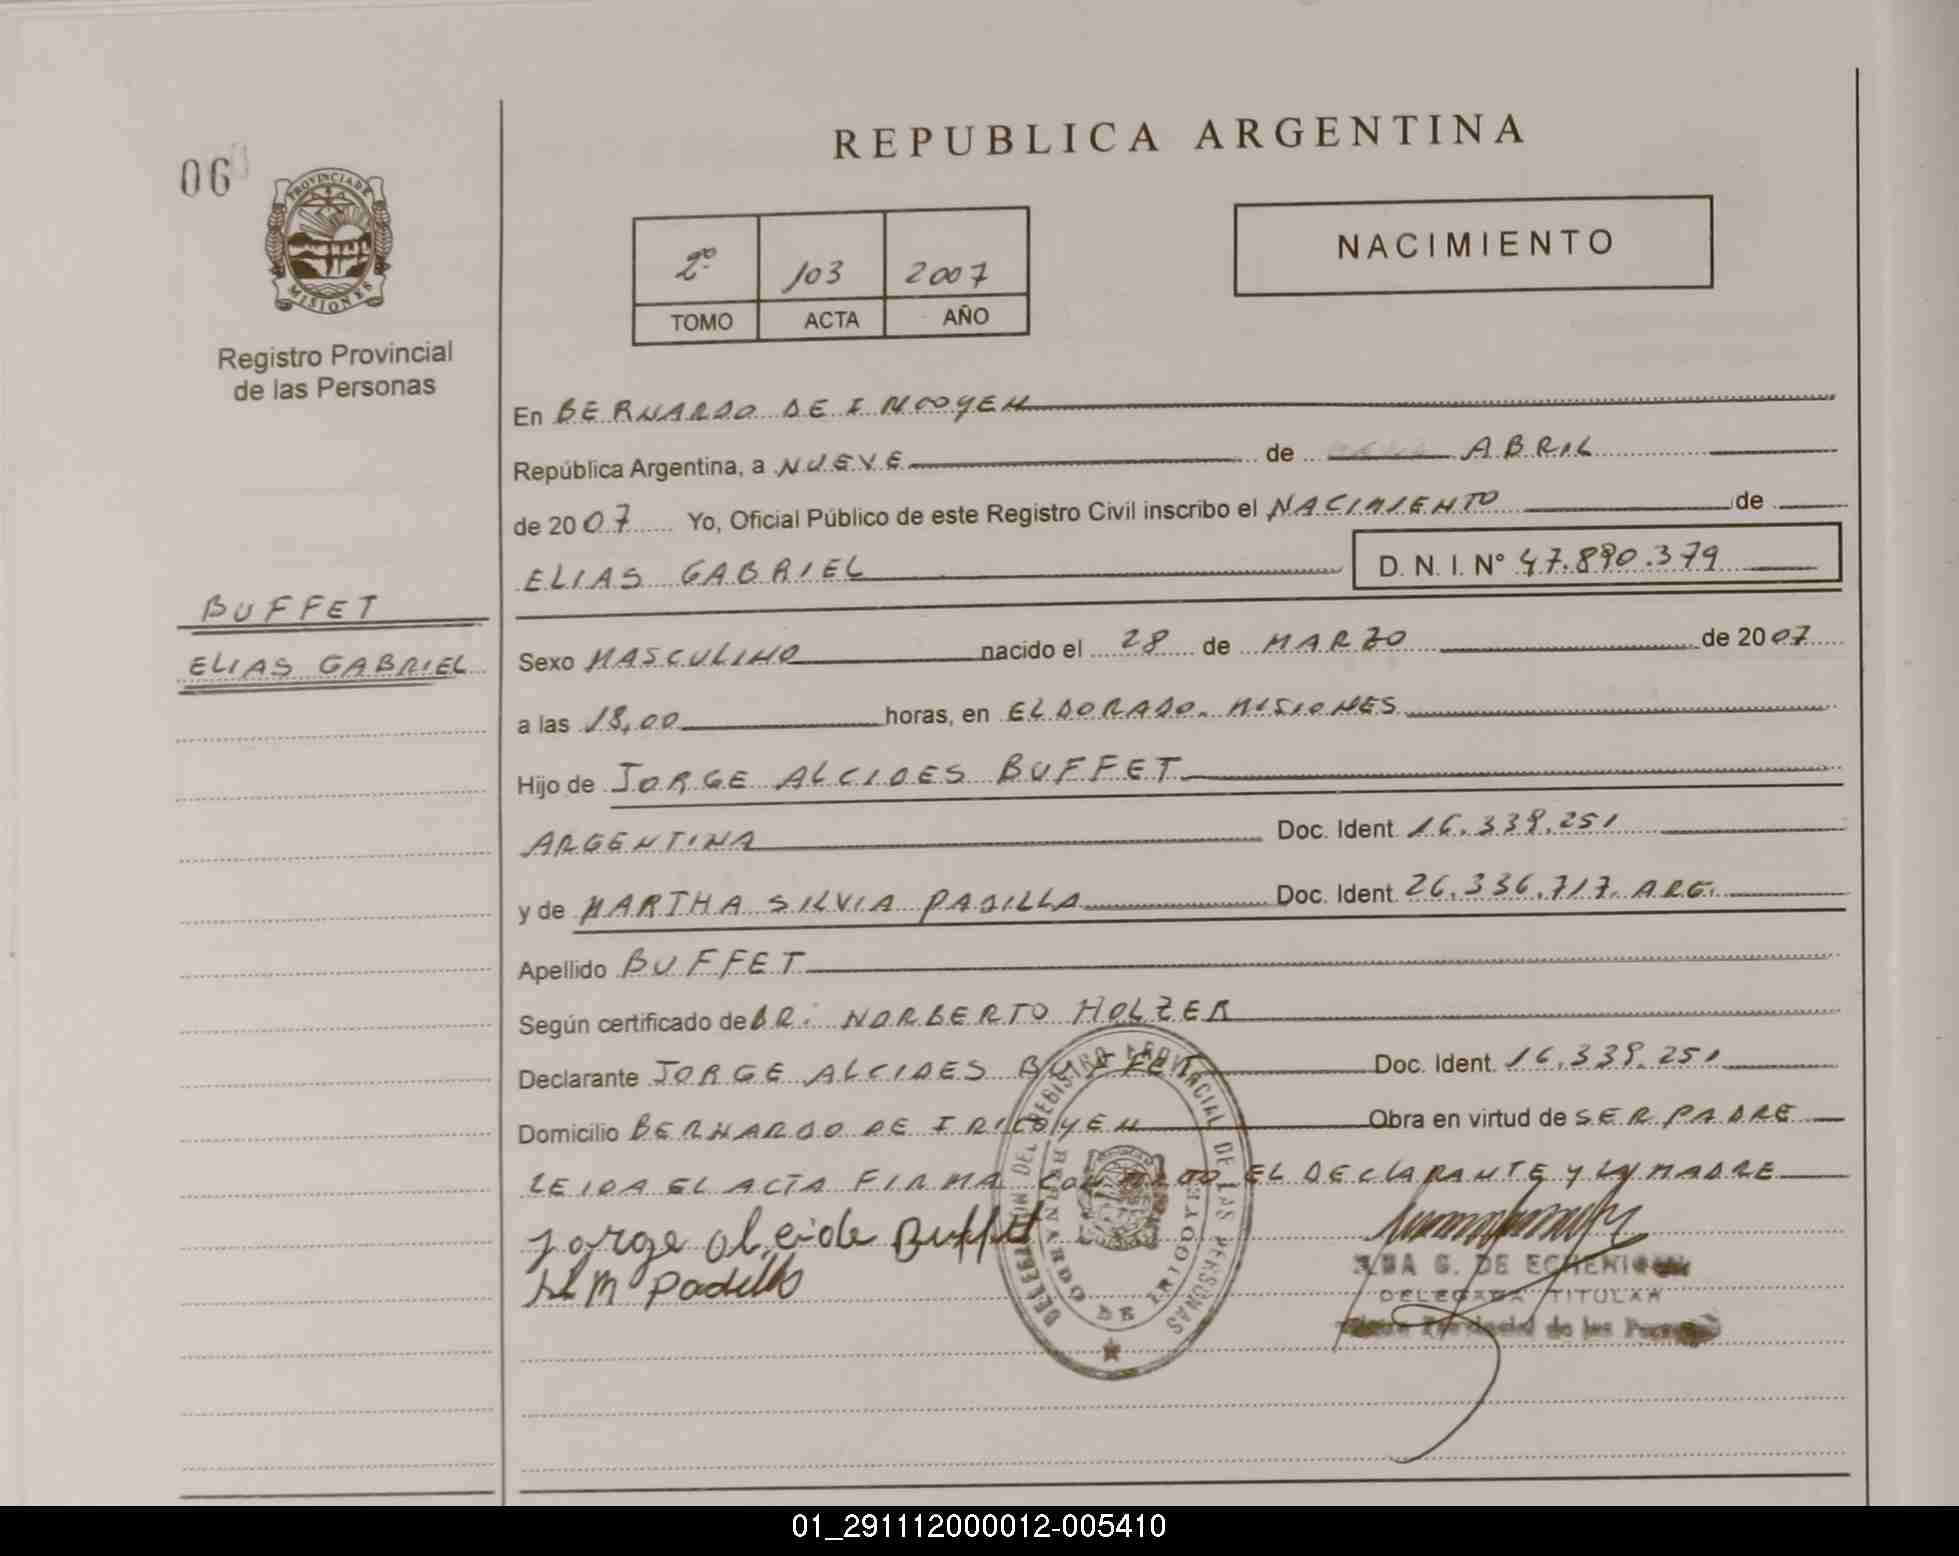 REPUBLICA ARGENTINA
06
PROVINCIA DE
MISIONES
Registro Provincial
de las Personas
2º 103 2007
TOMO ACTA AÑO
NACIMIENTO
En BERNARDO DE IRIGOYEN
República Argentina, a NUEVE de ABRIL
de 2007 Yo, Oficial Público de este Registro Civil inscribo el NACIMIENTO de
ELIAS GABRIEL D. N. I. Nº 47.890.379
BUFFET
ELIAS GABRIEL
Sexo MASCULINO nacido el 28 de MARZO de 2007
a las 18,00 horas, en ELDORADO. MISIONES
Hijo de JORGE ALCIDES BUFFET
ARGENTINA Doc. Ident. 16.339.251
y de MARTHA SILVIA PADILLA Doc. Ident. 26.336.717. ARG.
Apellido BUFFET
Según certificado de DR: NORBERTO HOLZER
Declarante JORGE ALCIDES BUFFET Doc. Ident. 16.339.251
Domicilio BERNARDO DE IRIGOYEN Obra en virtud de SER PADRE
LEIDA EL ACTA FIRMA CONMIGO EL DECLARANTE Y LA MADRE
Jorge alcide Buffet
Padilla
DELEGACION DEL REGISTRO PROVINCIAL DE LAS PERSONAS
BERNARDO DE IRIGOYEN
G. DE
DELEGADA TITULAR
Provincial de las
01_291112000012-005410